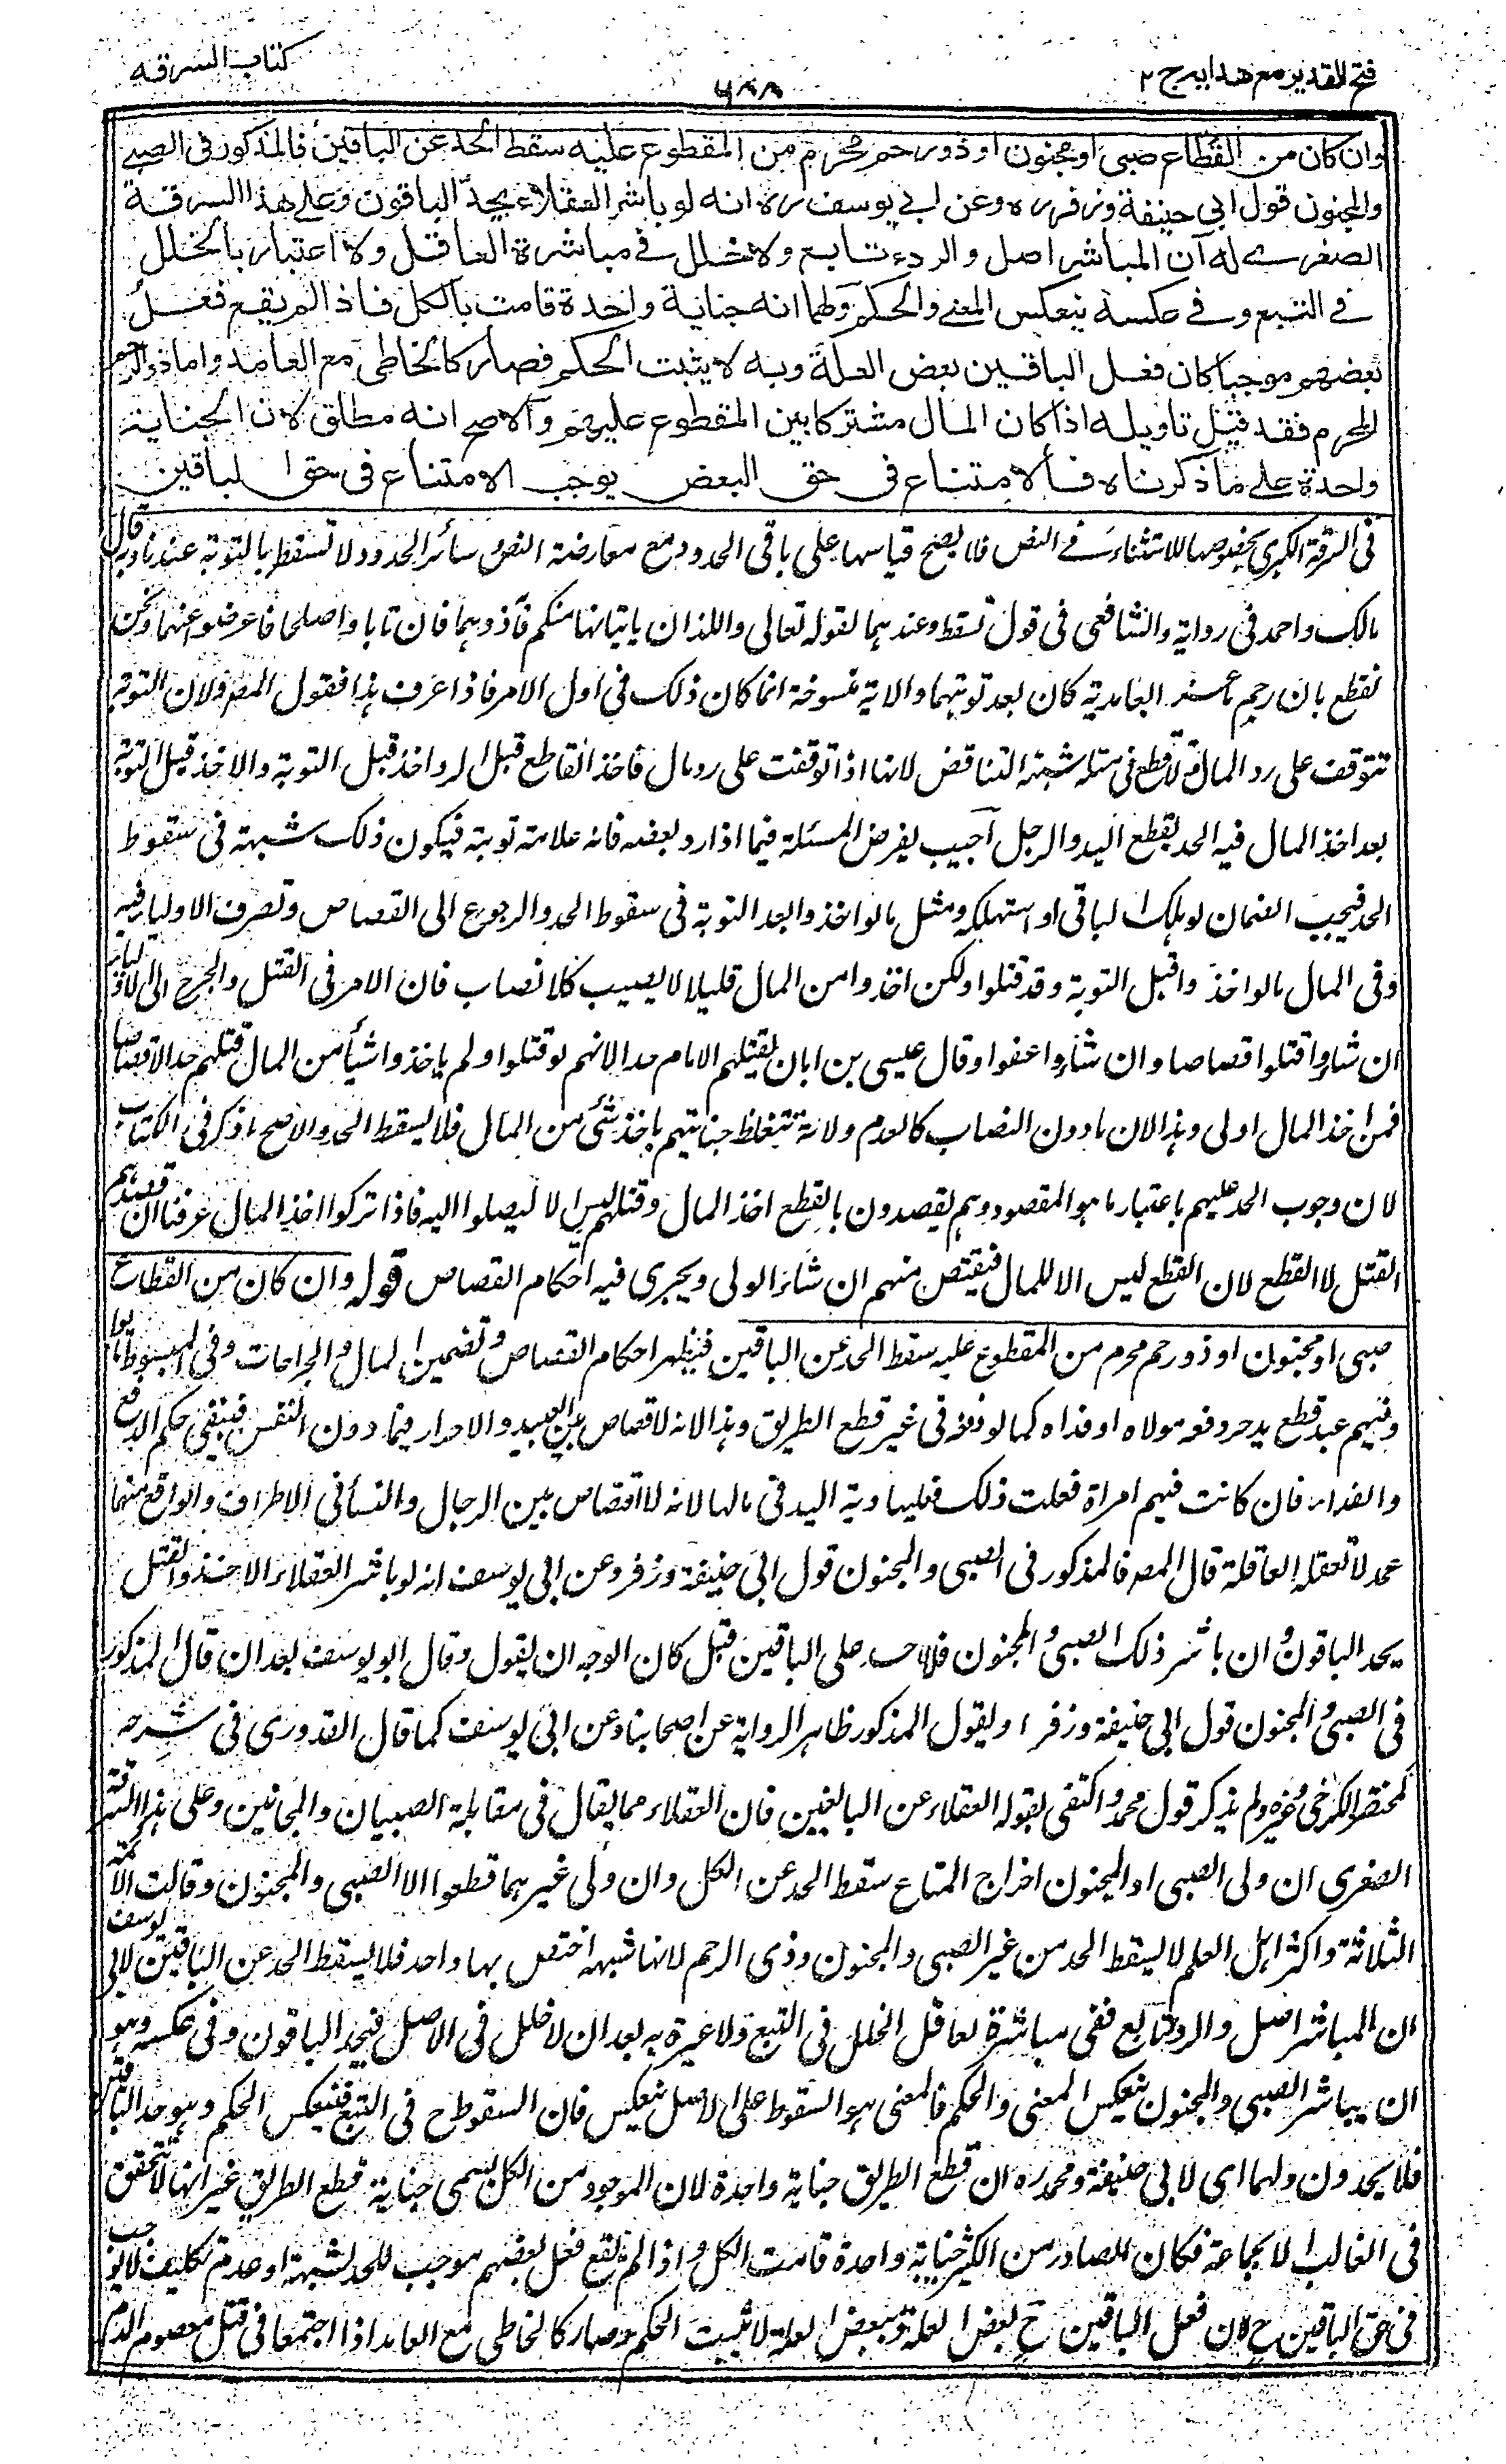 فتح القدير مع هدايه ج ٢
٦٨٨
كتاب السرقه
وان كان من القطاع صبى او مجنون او ذو رحم محرم من المقطوع عليه سقط الحد عن الباقين فالمذكور فى الصبے
والمجنون قول ابى حنيفة وزفر ره وعن ابے يوسف ره انه لو باشر العقلاء يحد الباقون وعلے هذا السرقة
الصغرے له ان المباشر اصل والردء تابع ولا خلل فے مباشرة العاقل ولا اعتبار بالخلل
فے التبع وفے عكسه ينعكس المعنے والحكم ولهما انه جناية واحدة قامت بالكل فاذا لم يقع فعل
بعضهم موجبا كان فعل الباقين بعض العلة وبه لا يثبت الحكم فصار كالخاطى مع العامد واما ذو الرحم
المحرم فقد قيل تاويله اذا كان المال مشتركا بين المقطوع عليهم والاصح انه مطلق لان الجناية
واحدة علے ما ذكرناه فالامتناع فى حق البعض يوجب الامتناع فى حق الباقين
فى السرقة الكبرى بخصوصها للاستثناء فے النص فلا يصح قياسها على باقى الحدود مع معارضة النص وسائر الحدود لا تسقط بالتوبة عندنا وبه قال
مالك واحمد فى رواية والشافعى فى قول تسقط وعندهما لقوله تعالى واللذان ياتيانها منكم فآذوهما فان تابا واصلحا فاعرضوا عنهما ونحن
نقطع بان رجم ماعز والغامدية كان بعد توبتهما والاية منسوخة انما كان ذلك فى اول الامر فاذا عرف هذا فقول المص ولان التوبة
تتوقف على رد المال ولا قطع فى مثله شبهة التناقض لانها اذا توقفت على رد مال فاخذ القاطع قبل الرد اخذ قبل التوبة والاخذ قبل التوبة
بعد اخذ المال فيه الحد بقطع اليد والرجل اجيب بفرض المسئلة فيما اذا رد بعضه فانه علامة توبة فيكون ذلك شبهة فى سقوط
الحد فيجب الضمان لو هلك الباقى او استهلكه ومثل ما لو اخذوا بعد التوبة فى سقوط الحد والرجوع الى القصاص وتصرف الاولياء فيه
وفى المال ما لو اخذوا قبل التوبة وقد قتلوا ولكن اخذوا من المال قليلا لا يصيب كلا نصاب فان الامر فى القتل والجرح الى الاولياء
ان شاؤا قتلوا قصاصا وان شاؤا عفوا وقال عيسى بن ابان يقتلهم الامام حدا لانهم لو قتلوا ولم ياخذوا شيأ من المال قتلهم حدا لا قصاصا
فمن اخذ المال اولى وهذا لان ما دون النصاب كالعدم ولانه تتغلظ جنايتهم باخذ شئ من المال فلا يسقط الحد والاصح ما ذكر فى الكتاب
لان وجوب الحد عليهم باعتبار ما هو المقصود وهم يقصدون بالقطع اخذ المال وقتلهم ليس الا ليصلوا اليه فاذا تركوا اخذ المال عرفنا ان قصدهم
القتل لا القطع لان القطع ليس الا للمال فيقتص منهم ان شاء الولى ويجرى فيه احكام القصاص قوله وان كان من القطاع
صبى او مجنون او ذو رحم محرم من المقطوع عليه سقط الحد عن الباقين فيظهر احكام القصاص وتضمين المال والجراحات وفى المبسوط تابوا
وفيهم عبد قطع يد حر دفعه مولاه او فداه كما لو فعله فى غير قطع الطريق وهذا لانه لا قصاص بين العبيد والاحرار فيما دون النفس فيبقى حكم الدفع
والفداء فان كانت فيهم امراة فعلت ذلك فعليها دية اليد فى مالها لانه لا قصاص بين الرجال والنسأ فى الاطراف والواقع منها
عمد لا تعقله العاقلة قال المص فالمذكور فى الصبى والمجنون قول ابى حنيفة وزفر وعن ابى يوسف انه لو باشر العقلاء الاخذ والقتل
يحد الباقون وان باشر ذلك الصبى والمجنون فلا حد على الباقين قيل كان الوجه ان يقول وقال ابو يوسف بعد ان قال المذكور
فى الصبى والمجنون قول ابى حنيفة وزفر او يقول المذكور ظاهر الرواية عن اصحابنا وعن ابى يوسف كما قال القدورى فى شرحه
لمختصر الكرخى وغيره ولم يذكر قول محمد واكتفى بقوله العقلاء عن البالغين فان العقلاء مما يقال فى مقابلة الصبيان والمجانين وعلى هذا السرقة
الصغرى ان ولى الصبى او المجنون اخراج المتاع سقط الحد عن الكل وان ولى غيرهما قطعوا الا الصبى والمجنون وقالت الائمة
الثلاثة واكثر اهل العلم لا يسقط الحد من غير الصبى والمجنون وذى الرحم لانها شبهة اختص بها واحد فلا يسقط الحد عن الباقين لابى يوسف
ان المباشر اصل والردء تابع ففى مباشرة لعاقل الخلل فى التبع ولا عبرة به بعد ان لا خلل فى الاصل فيحد الباقون وفى عكسه وهو
ان يباشر الصبى والمجنون ينعكس المعنى والحكم فالمعنى هو السقوط على الاصل ينعكس فان السقوط ح فى التبع فينعكس الحكم وهو حد الباقين
فلا يحدون ولهما اى لابى حنيفة ومحمد ره ان قطع الطريق جناية واحدة لان الموجود من الكل يسمى جناية قطع الطريق غير انها لا تتحقق
فى الغالب الا بجماعة فكان الصادر من الكثير جناية واحدة قامت بالكل واذا لم يقع فعل بعضهم موجب للحد لشبهة او عدم تكليف لا يوجب
فى حق الباقين ح لان فعل الباقين ح بعض العلة وببعض العلة لا يثبت الحكم وصار كالخاطى مع العامد اذا اجتمعا فى قتل معصوم الدم